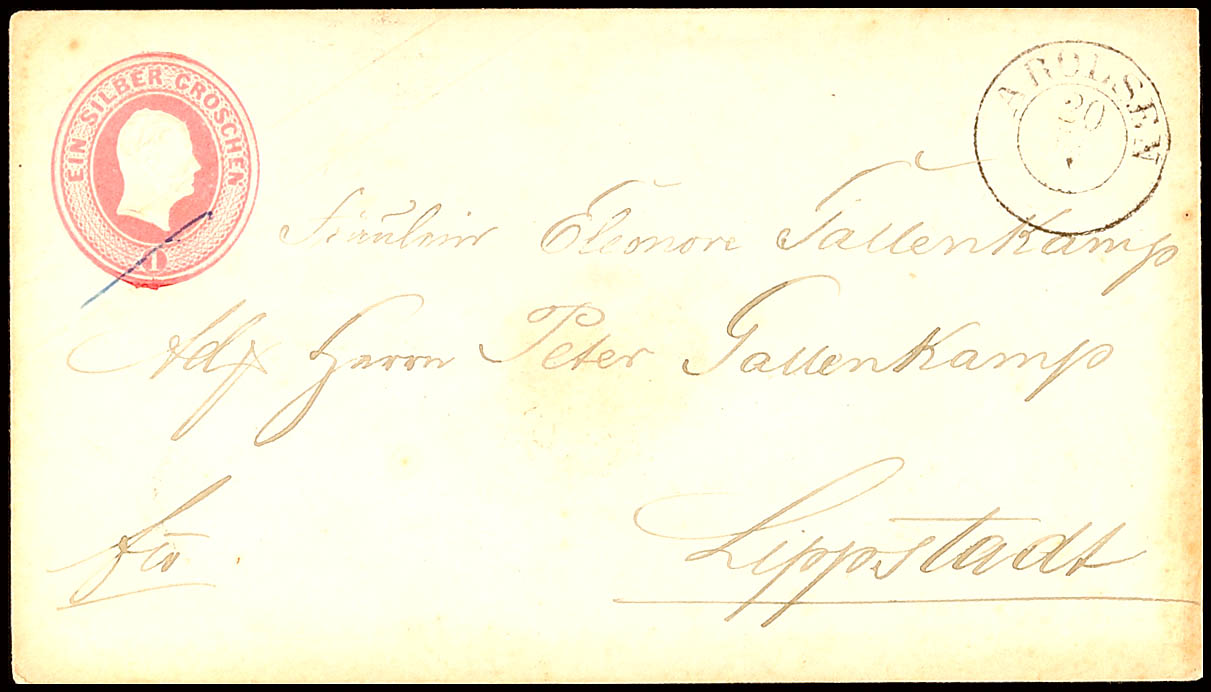 EIN SILBER GROSCHEN
1
AROLSEN
20
Fräulein Elenore Tallenkamp
Adr Herrn Peter Tallenkamp
Lippstadt